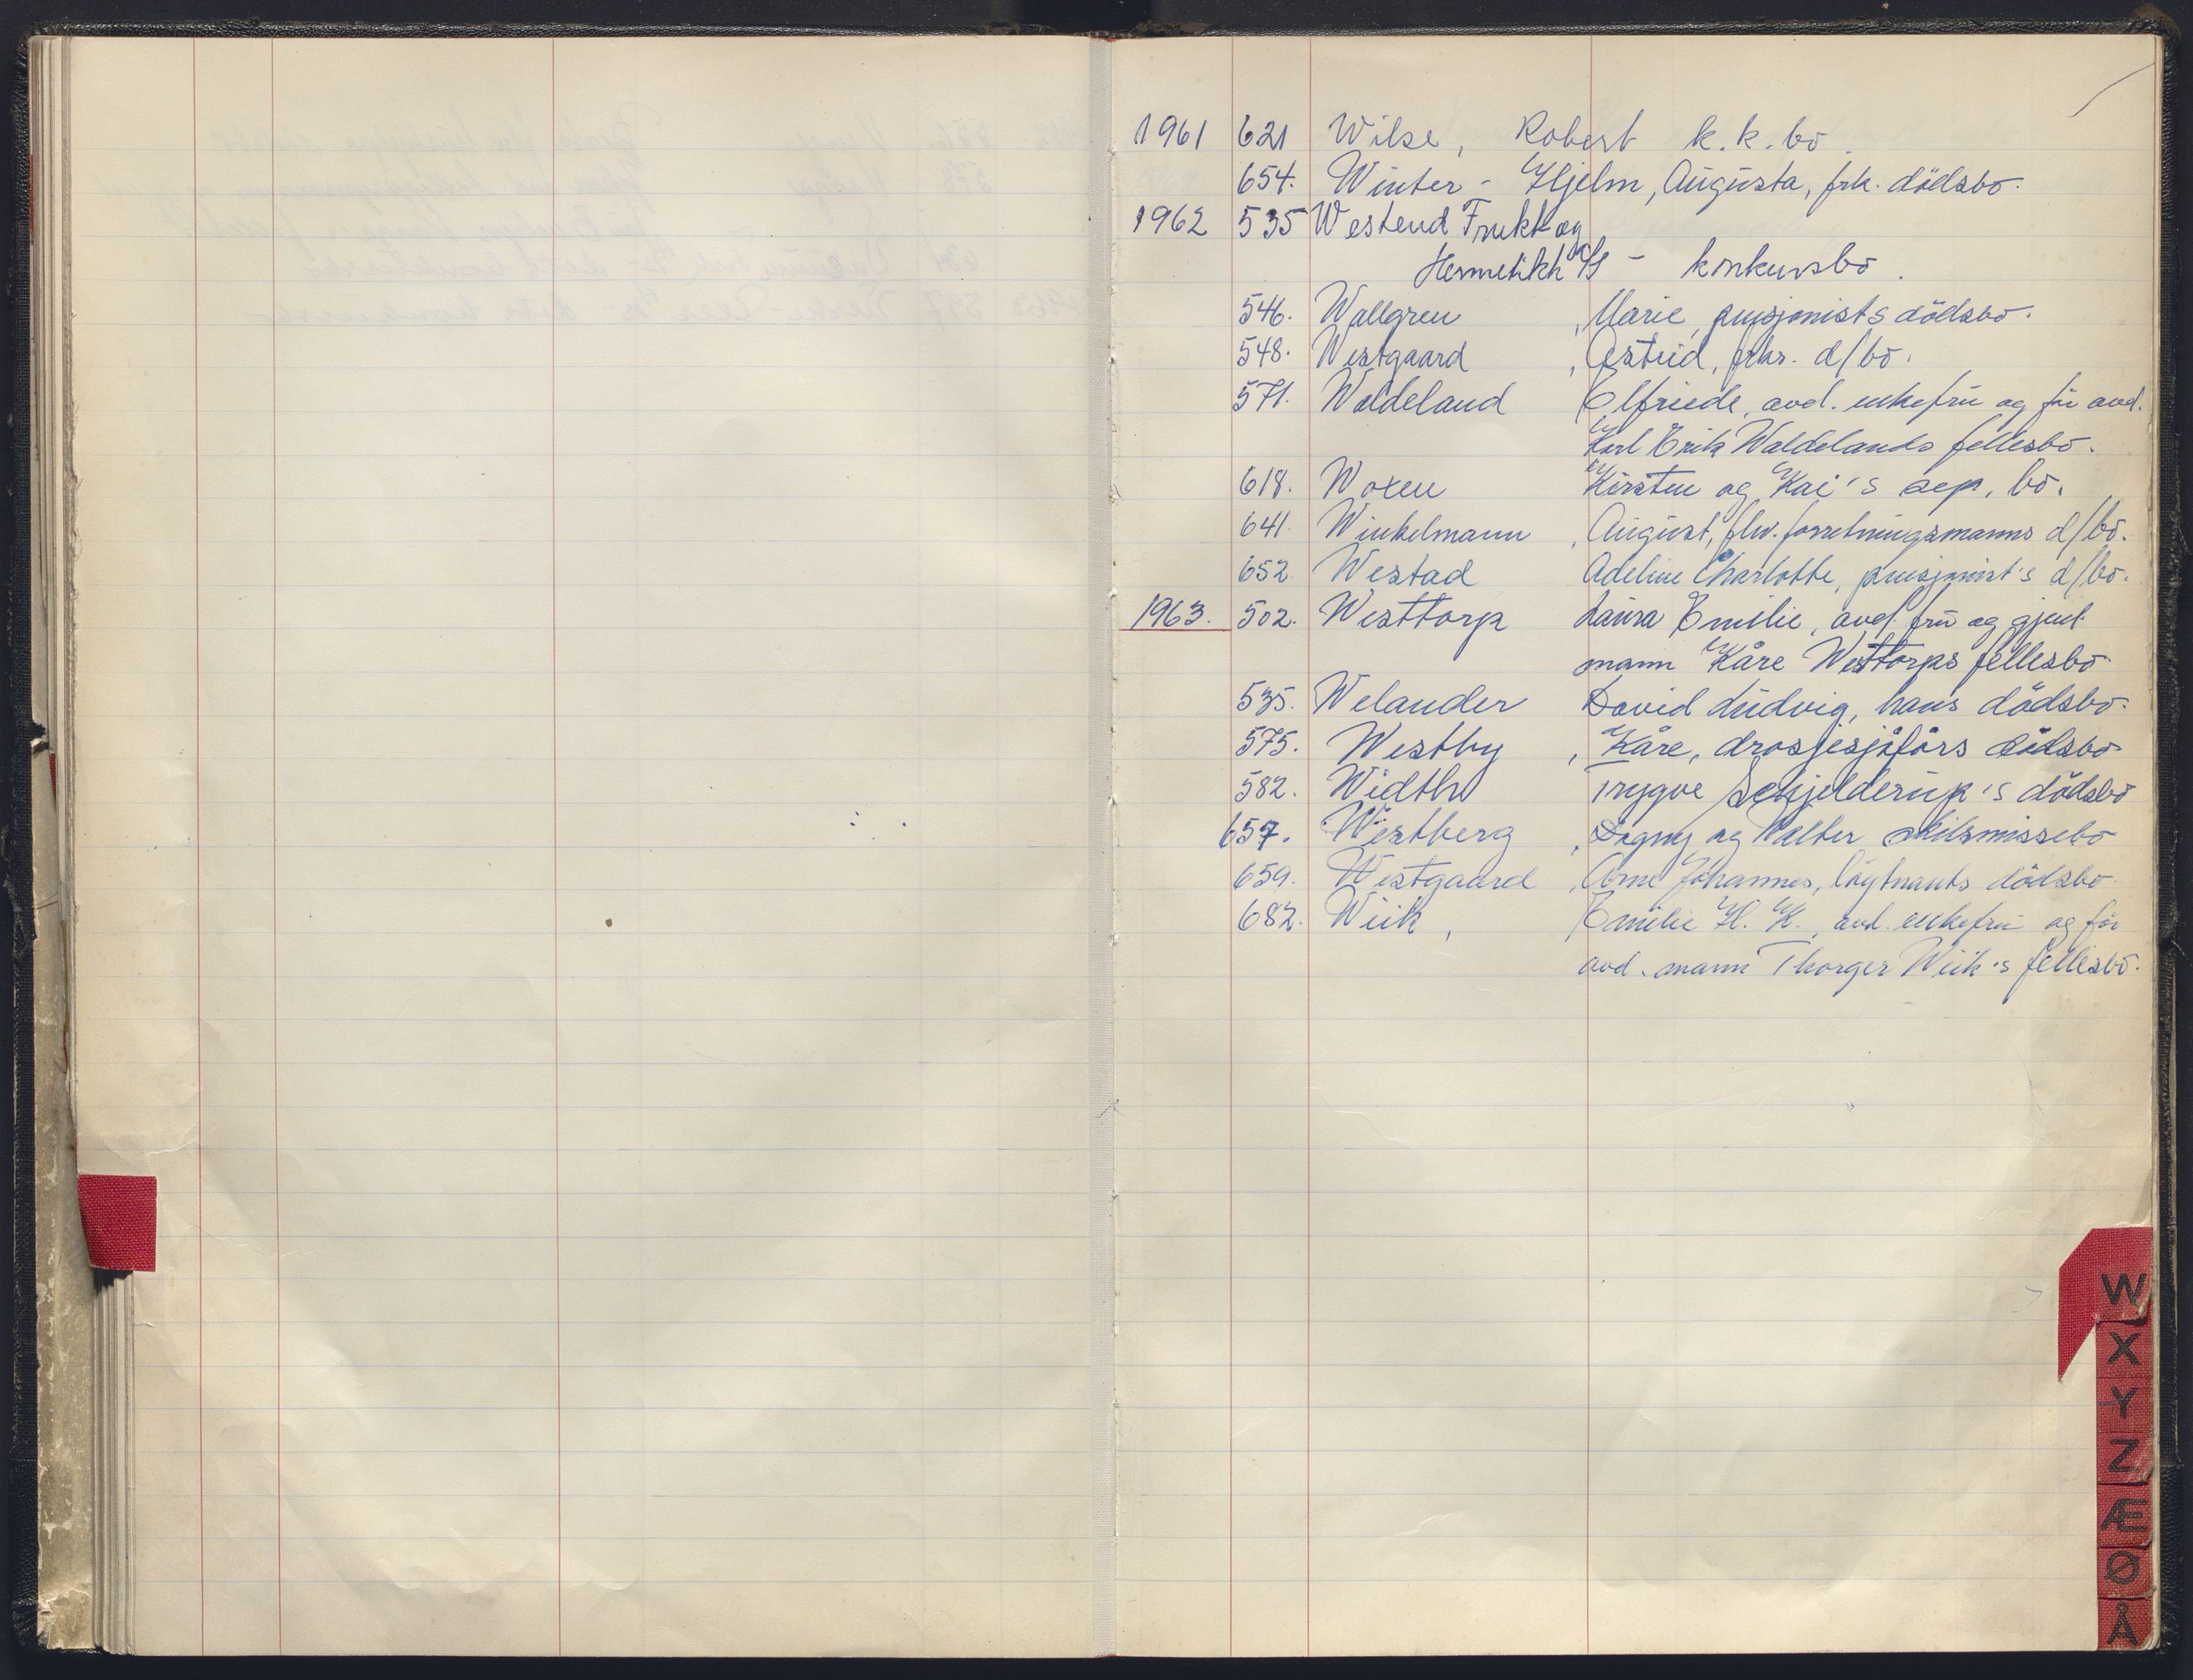 1961 621 Wilse, Robert k.k.bo.
654. Winter-Hjelm, Augusta, frk. dödsbo.
1962 535 Westend Frukt og
Hermetikk A/S - konkursbo.
546. Wallgren, Marie, pensjonists dödsbo.
548. Westgaard, Astrid, frks. d/bo.
571. Waldeland Elfriede, avd. enkefru og för avd.
Karl Erik Waldelands fellesbo.
618. Woxen Kirsten og Kai's sep. bo.
641. Winkelmann, August, fhv. forretningsmanns d/bo.
652. Westad Adeline Charlotte, pensjonist's d/bo.
1963. 502. Westtorp Laura Emilie, avd. fru og gjenl.
mann Kåre Westtorps fellesbo.
535. Welander David Ludvig, hans dödsbo.
575. Westby, Kåre, drosjesjåförs dödsbo
582. Width Trygve Schjelderup's dödsbo
657. Westberg, Dagny og Walter skilsmissebo
659. Westgaard, Arne Johannes, löytnants dödsbo.
682. Wiik, Emilie H. K., avd. enkefru og för
avd. mann Thorger Wiik's fellesbo.
W
X
Y
Z
Æ
Ø
Å